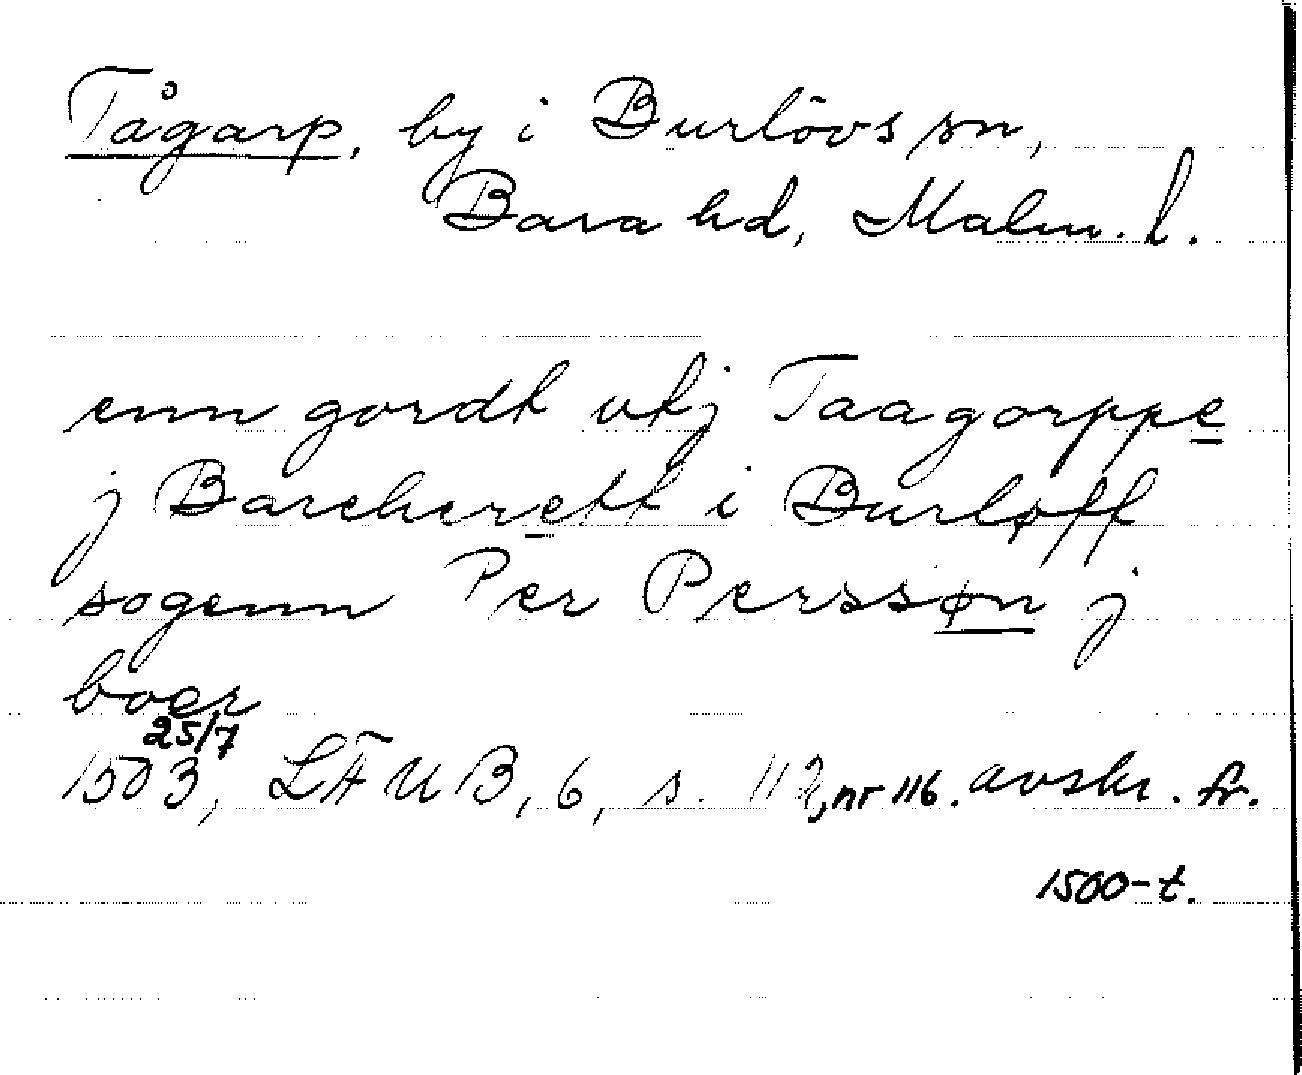 Tågarp, by i Burlövs sn,
Bara hd, Malm. l.
enn gordt utj Taagorppe
j Barchcrett i Burløff
sogenn Per Perssøn j
boer
25/7
1503, LÄUB, 6, s. 112, nr 116. avskr. fr.
1500-t.